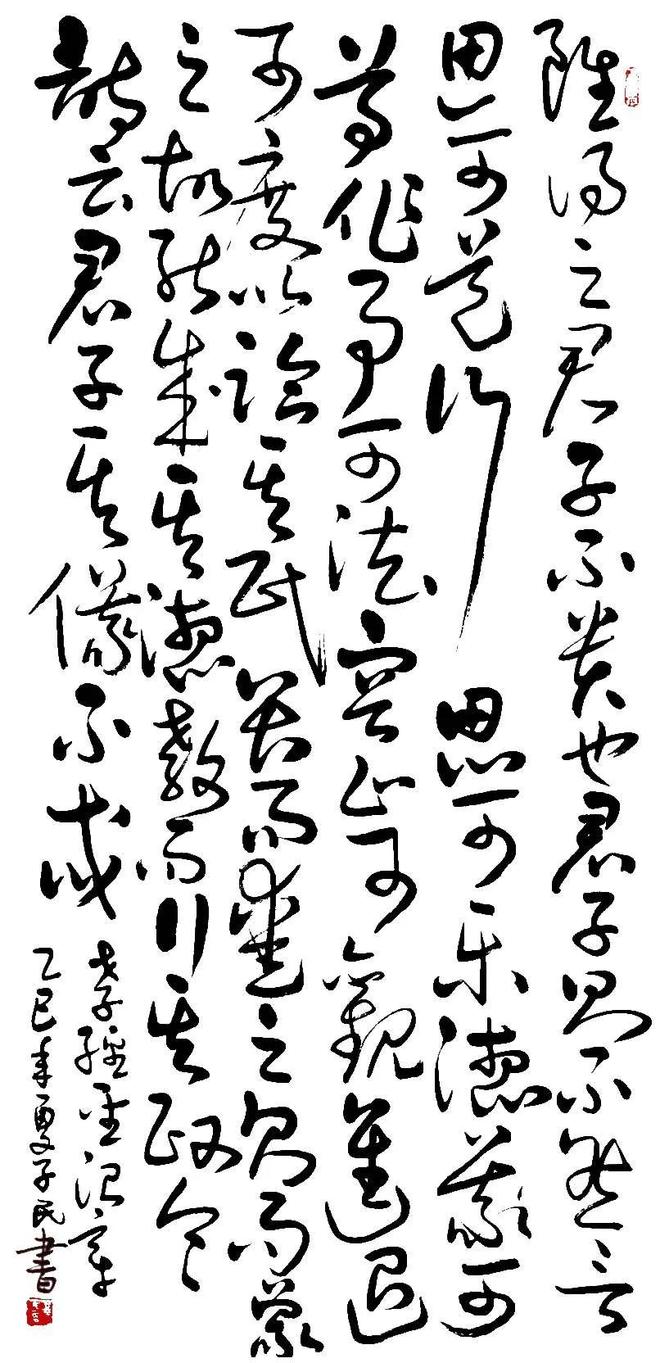 雖得之君子不貴也君子則不然言
思可道行思可樂德義可
尊作事可法容止可觀進退
可度以臨其民畏而愛之則而象
之故能成其德教而行其政令
詩云君子其儀不忒
孝經聖治章
乙巳年夏子民書